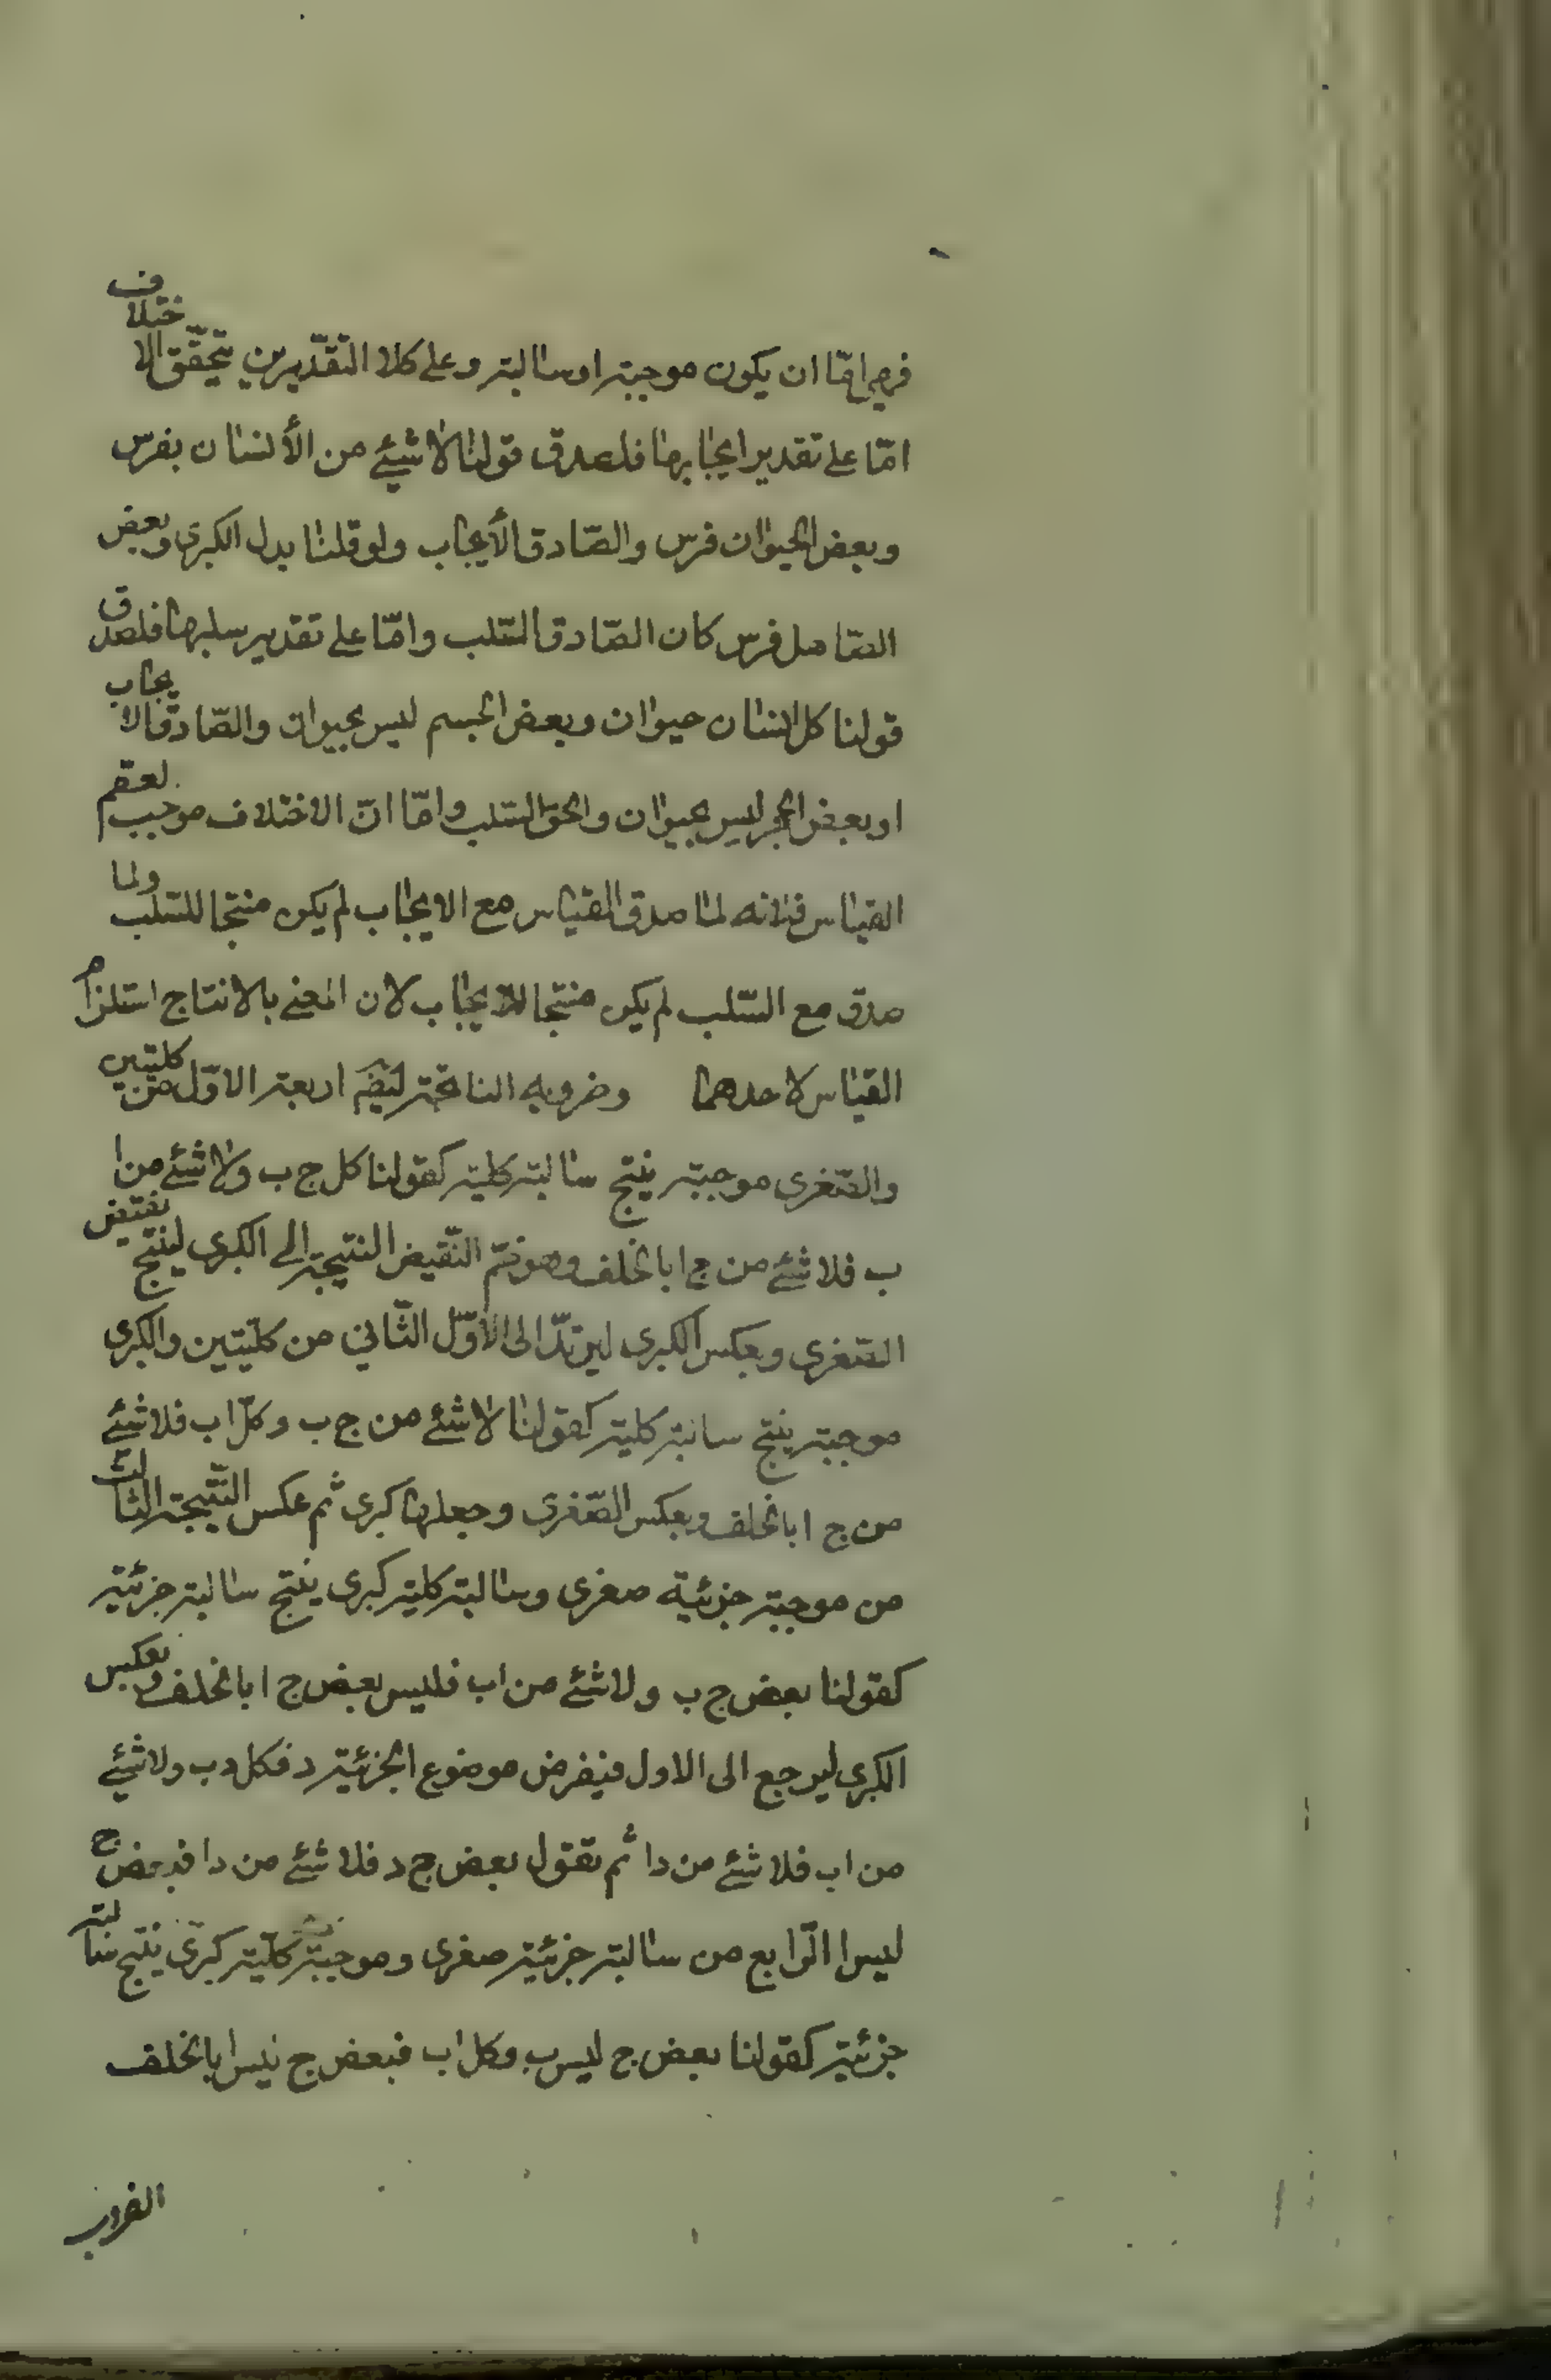 فهي امّا ان يكون موجبة او سالبة وعلى كلا التقديرين يتحقّق الاختلاف
امّا على تقدير ايجابها فلصدق قولنا لا شيئ من الأنسان بفرس
وبعض الحيوان فرس والصّادق الأيجاب ولو قلنا بدل الكبرى وبعض
الصّاهل فرس كان الصّادق السّلب وامّا على تقدير سلبها فلصدق
قولنا كل انسان حيوان وبعض الجسم ليس بحيوان والصّادق الايجاب
او بعض الحجر ليس بحيوان والحقّ السّلب وامّا انّ الاختلاف موجب لعقم
القياس فلانه لمّا صدق القياس مع الايجاب لم يكن منتجا للسّلب ولما
صدق مع السّلب لم يكن منتجا للايجاب لان المعنى بالانتاج استلزام
القياس لاحدهما وضروبه الناتجة اربعة الاوّل من كليّتين
والصّغرى موجبة ينتج سالبة كلية كقولنا كل ج ب ولا شئ من ا
ب فلا شئ من ج ا بالخلف وهو ضمّ النّقيض النتيجة الى الكبرى لينتج نقيض
الصّغرى وبعكس الكبرى ليرتدّ الى الأوّل الثّاني من كليّتين والكبرى
موجبة ينتج سالبة كلية كقولنا لا شئ من ج ب وكلّ اب فلا شئ
من ج ا بالخلف وبعكس الصّغرى وجعلها كبرى ثم عكس النّتيجة الثالث
من موجبة جزئية صغرى وسالبة كلية كبرى ينتج سالبة جزئية
كقولنا بعض ج ب ولا شئ من اب فليس بعض ج ا بالخلف وبعكس
الكبرى ليرجع الى الاول فيفرض موضوع الجزئية د فكل د ب ولا شيئ
من اب فلا شئ من د ا ثم نقول بعض ج د فلا شئ من د ا فبعض ج
ليس ا الرّابع من سالبة جزئية صغرى وموجبة كلّية كبرى ينتج سالبة
جزئية كقولنا بعض ج ليس ب وكل اب فبعض ج ليس ا بالخلف